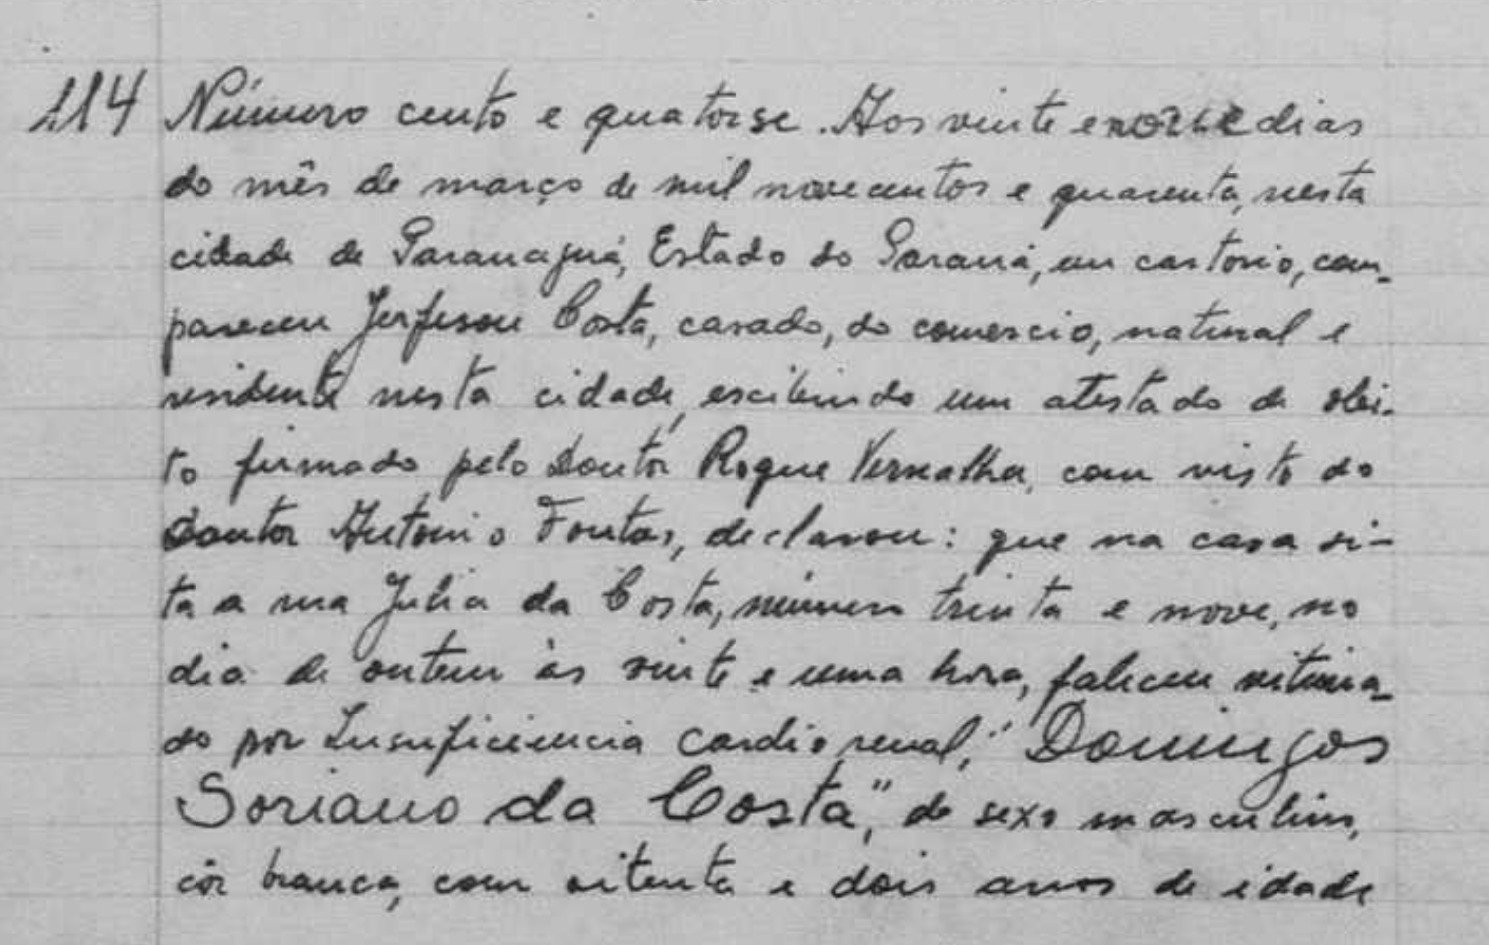 114 Número cento e quatorse. Aos vinte e nove dias
do mês de março de mil novecentos e quarenta, nesta
cidade de Paranaguá, Estado do Paraná, em cartorio, com-
pareceu Jerfeson Costa, casado, do comercio, natural e
residente nesta cidade, escibindo um atestado de obi-
to firmado pelo Doutor Roque Vernalha, com visto do
Doutor Antonio Fontes, declarou: que na casa si-
ta a rua Julia da Costa, número trinta e nove, no
dia de ontem às vinte e uma hora, faleceu vitima-
do por Insuficiencia cardio renal, "Domingos
Soriano da Costa", do sexo masculino,
côr branca, com oitenta e dois anos de idade